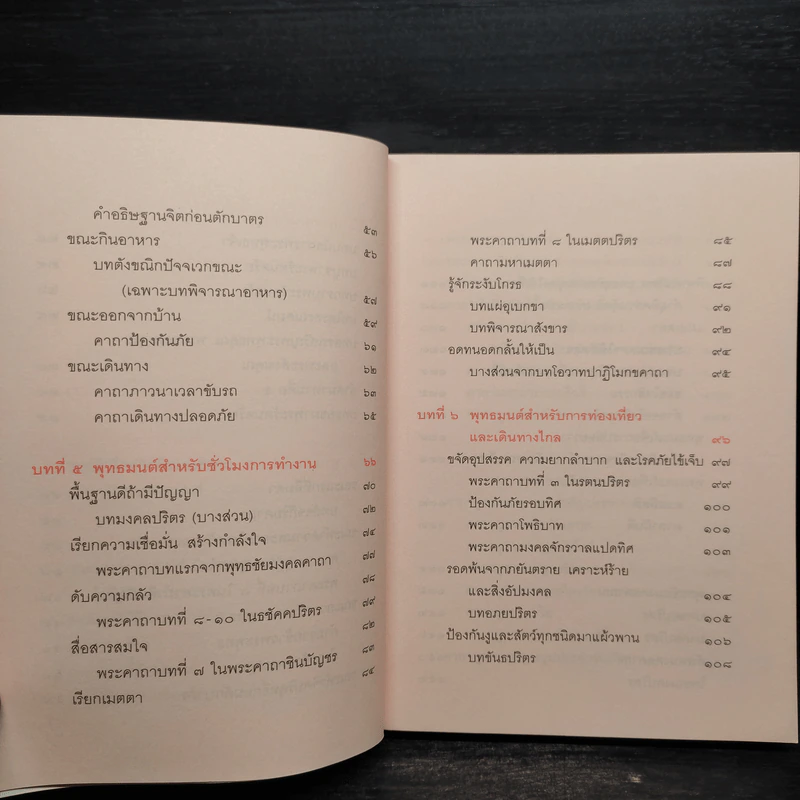 คำอธิษฐานจิตก่อนตักบาตร ๕๓
ขณะกินอาหาร ๕๖
บทตังขณิกปัจจเวกขณะ
(เฉพาะบทพิจารณาอาหาร) ๕๗
ขณะออกจากบ้าน ๕๙
คาถาป้องกันภัย ๖๑
ขณะเดินทาง ๖๒
คาถาภาวนาเวลาขับรถ ๖๓
คาถาเดินทางปลอดภัย ๖๕
บทที่ ๕ พุทธมนต์สำหรับชั่วโมงการทำงาน ๖๖
พื้นฐานดีถ้ามีปัญญา ๗๐
บทมงคลปริตร (บางส่วน) ๗๒
เรียกความเชื่อมั่น สร้างกำลังใจ ๗๔
พระคาถาบทแรกจากพุทธชัยมงคลคาถา ๗๗
ดับความกลัว ๗๘
พระคาถาบทที่ ๘-๑๐ ในธชัคคปริตร ๗๙
สื่อสารสมใจ ๘๒
พระคาถาบทที่ ๗ ในพระคาถาชินบัญชร ๘๓
เรียกเมตตา ๘๔
พระคาถาบทที่ ๘ ในเมตตปริตร ๘๕
คาถามหาเมตตา ๘๗
รู้จักระงับโกรธ ๘๘
บทแผ่อุเบกขา ๙๑
บทพิจารณาสังขาร ๙๒
อดทนอดกลั้นให้เป็น ๙๔
บางส่วนจากบทโอวาทปาฏิโมกขคาถา ๙๕
บทที่ ๖ พุทธมนต์สำหรับการท่องเที่ยว
และเดินทางไกล ๙๖
ขจัดอุปสรรค ความยากลำบาก และโรคภัยไข้เจ็บ ๙๗
พระคาถาบทที่ ๓ ในรตนปริตร ๙๙
ป้องกันภัยรอบทิศ ๑๐๐
พระคาถาโพธิบาท ๑๐๑
พระคาถามงคลจักรวาลแปดทิศ ๑๐๓
รอดพ้นจากภยันตราย เคราะห์ร้าย
และสิ่งอัปมงคล ๑๐๔
บทอภยปริตร ๑๐๕
ป้องกันงูและสัตว์ทุกชนิดมาแผ้วพาน ๑๐๖
บทขันธปริตร ๑๐๘